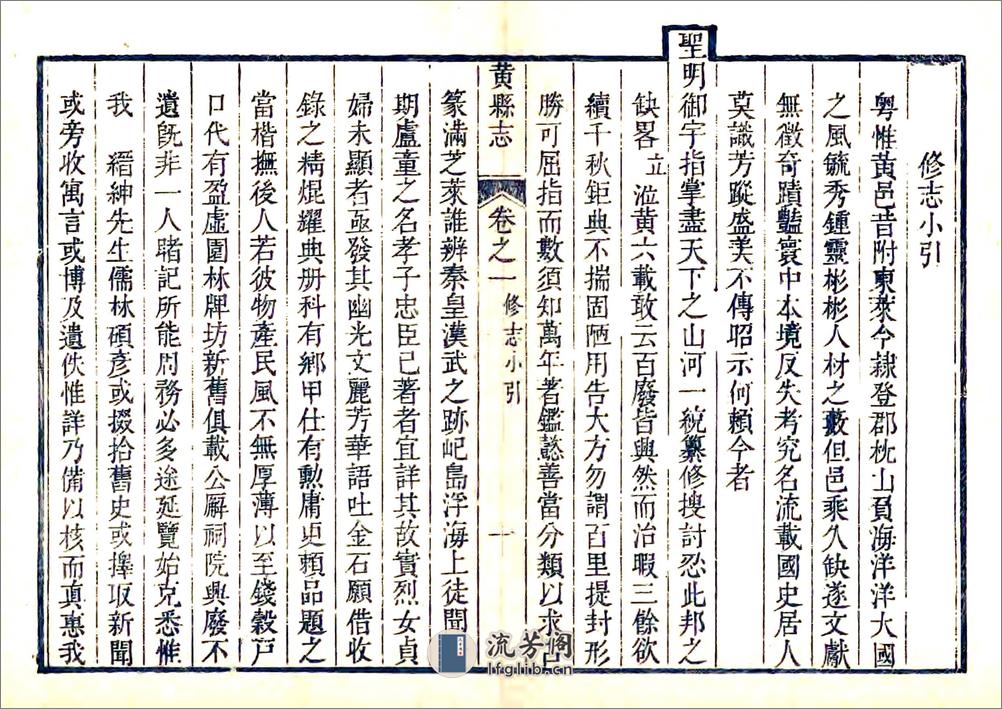 修志小引
粤惟黃邑昔附東萊今隸登郡枕山負海洋洋大國
之風毓秀鍾靈彬彬人材之藪但邑乘久缺遂文獻
無徵奇蹟豔寰中本境反失考究名流載國史居人
莫識芳蹤盛美不傳昭示何賴今者
聖明御宇指掌盡天下之山河一統纂修搜討忍此邦之
缺畧立涖黃六載敢云百廢皆興然而治暇三餘欲
續千秋鉅典不揣固陋用告大方勿謂百里提封形
勝可屈指而數須知萬年著鑑懿善當分類以求
黃縣志 卷之一 修志小引 一
篆滿芝萊誰辨秦皇漢武之跡屺島浮海上徒聞
期盧童之名孝子忠臣已著者宜詳其故實烈女貞
婦未顯者亟發其幽光文麗芳華語吐金石願借收
錄之精焜耀典册科有鄉甲仕有勲庸更賴品題之
當楷撫後人若彼物產民風不無厚薄以至錢穀戸
口代有盈虛園林牌坊新舊俱載公廨祠院興廢不
遺旣非一人睹記所能周務必多途延覽始克悉惟
我 縉紳先生儒林碩彥或掇拾舊史或擇取新聞
或旁收寓言或博及遺佚惟詳乃備以核而眞惠我
流芳閣
lfglib.cn